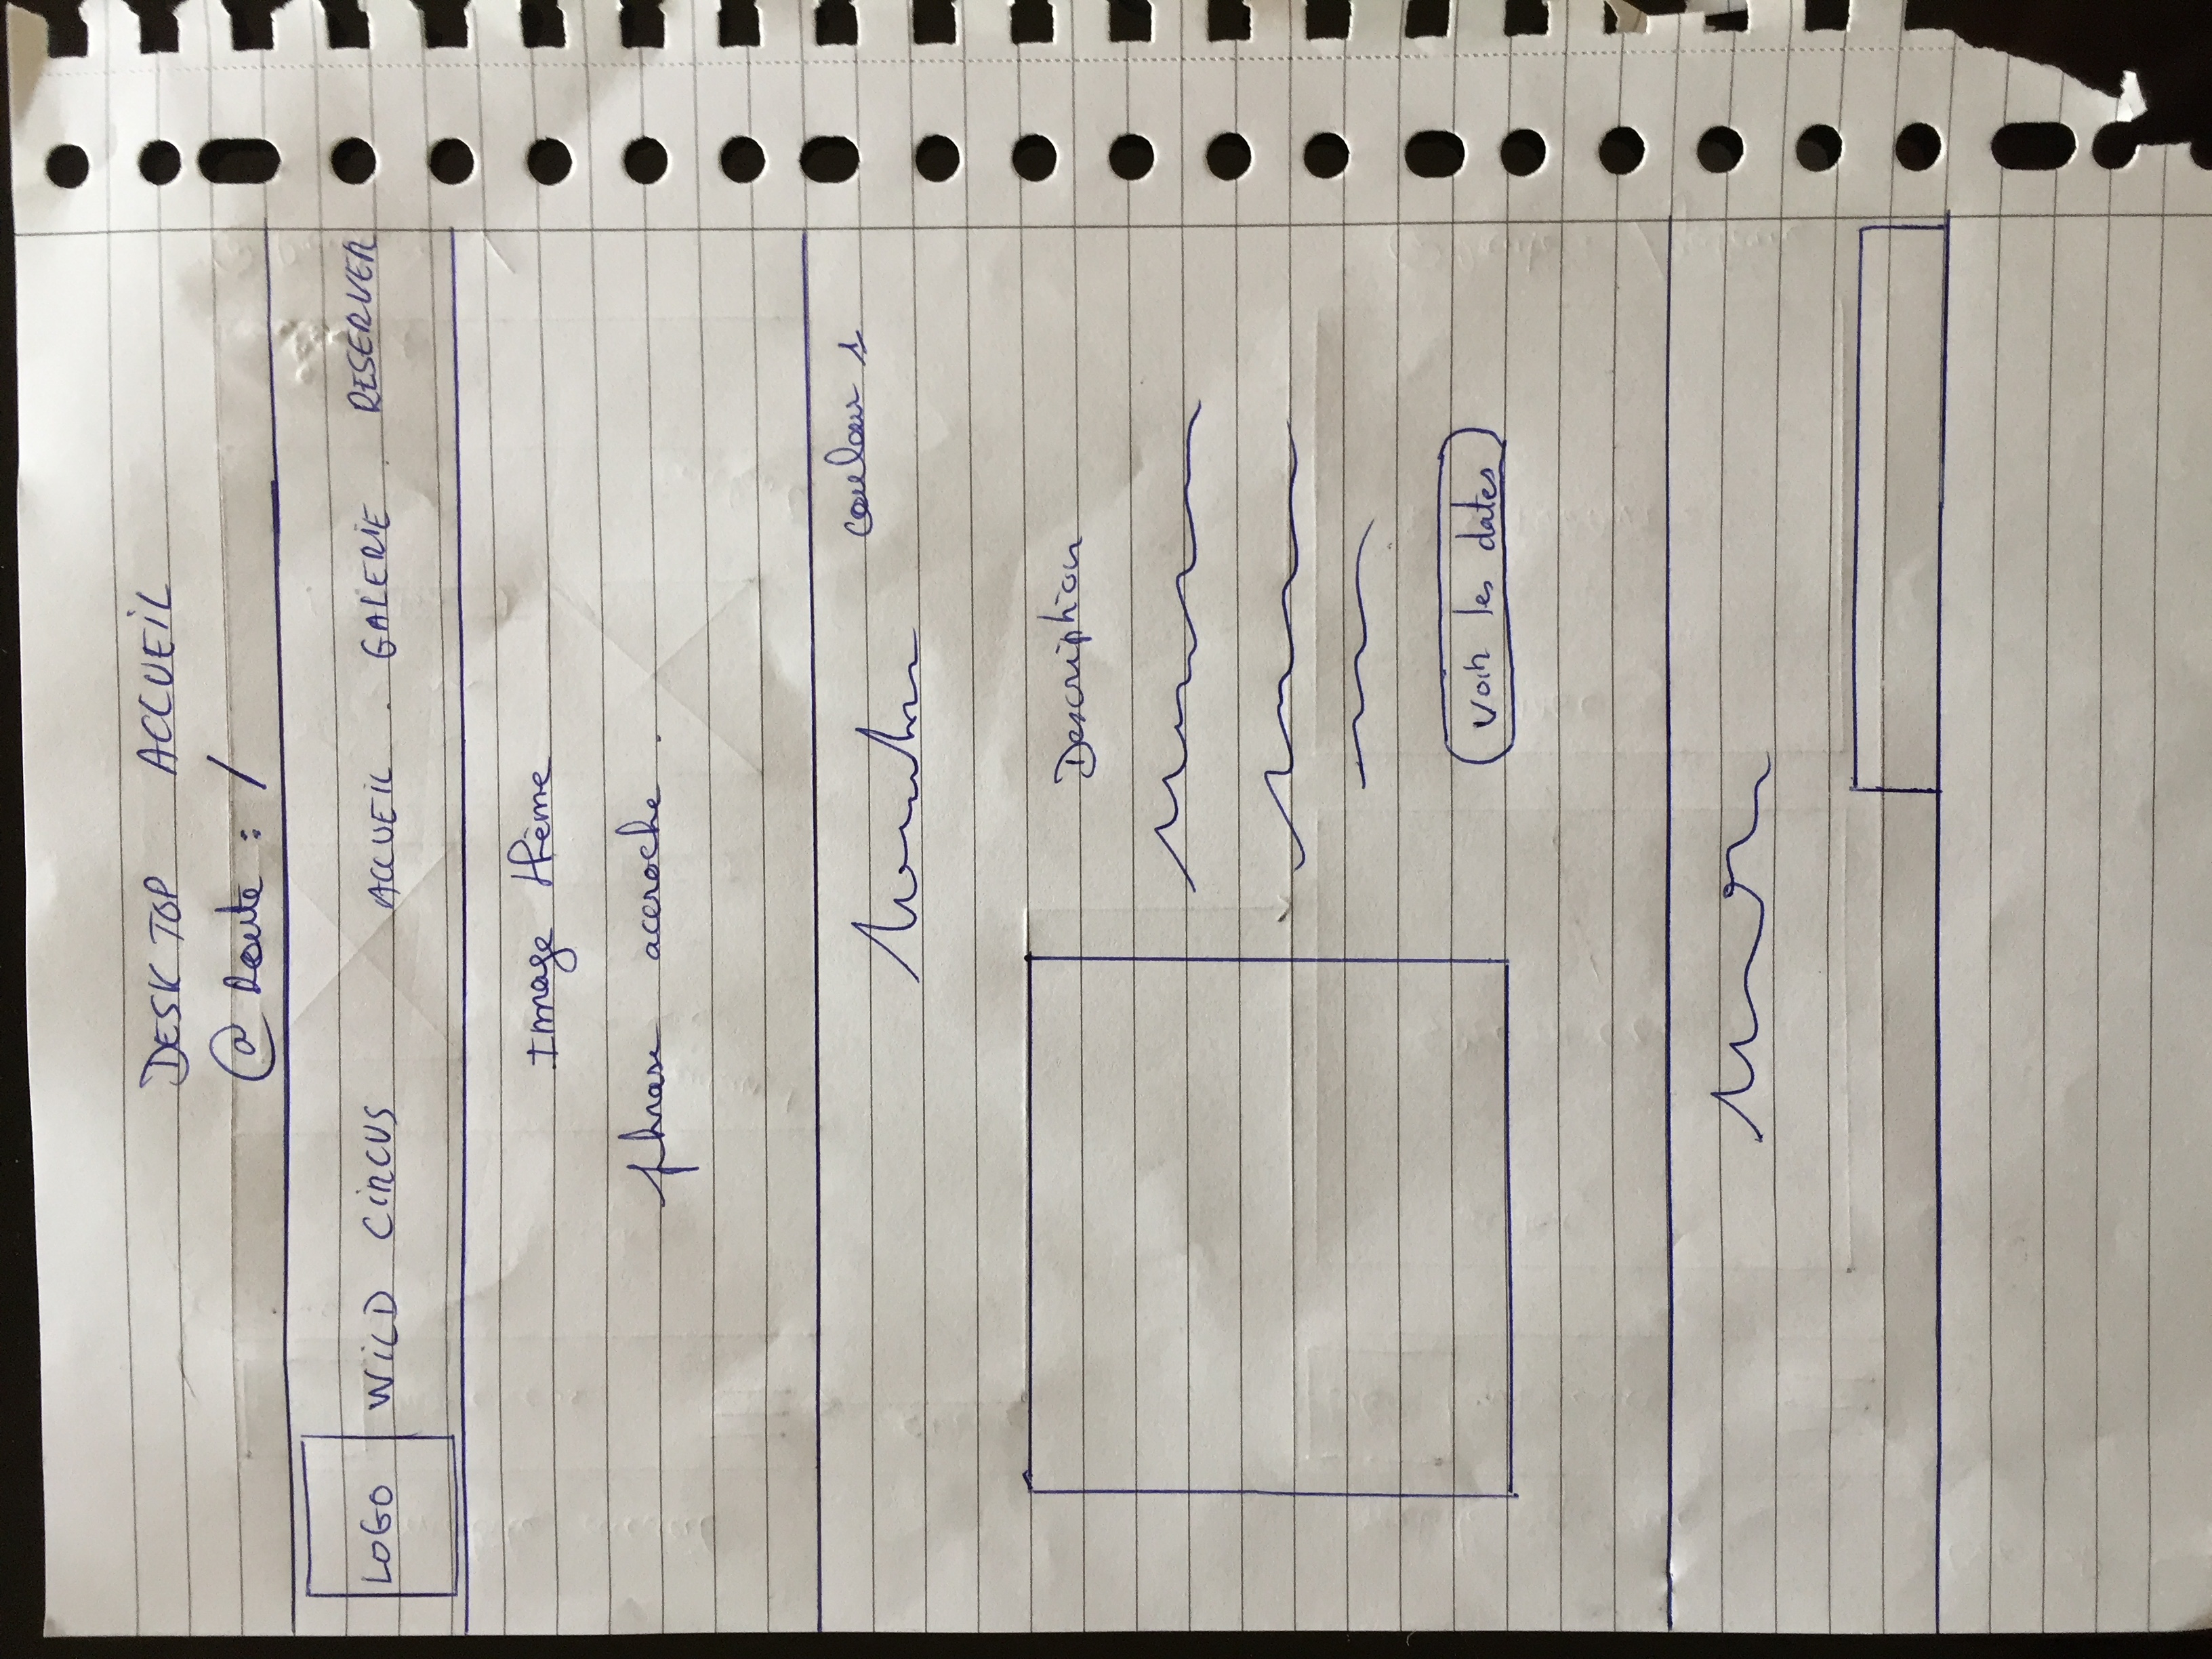 DESKTOP ACCUEIL
@Route : /
LOGO WILD CIRCUS ACCUEIL . GALERIE . RESERVER
Image thème
phrase accroche .
couleur 1
Description
voir les dates